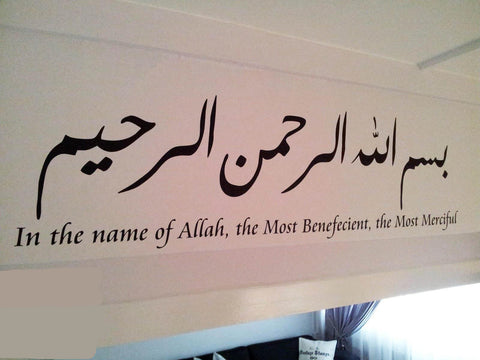 بسم الله الرحمن الرحيم
In the name of Allah, the Most Benefecient, the Most Merciful